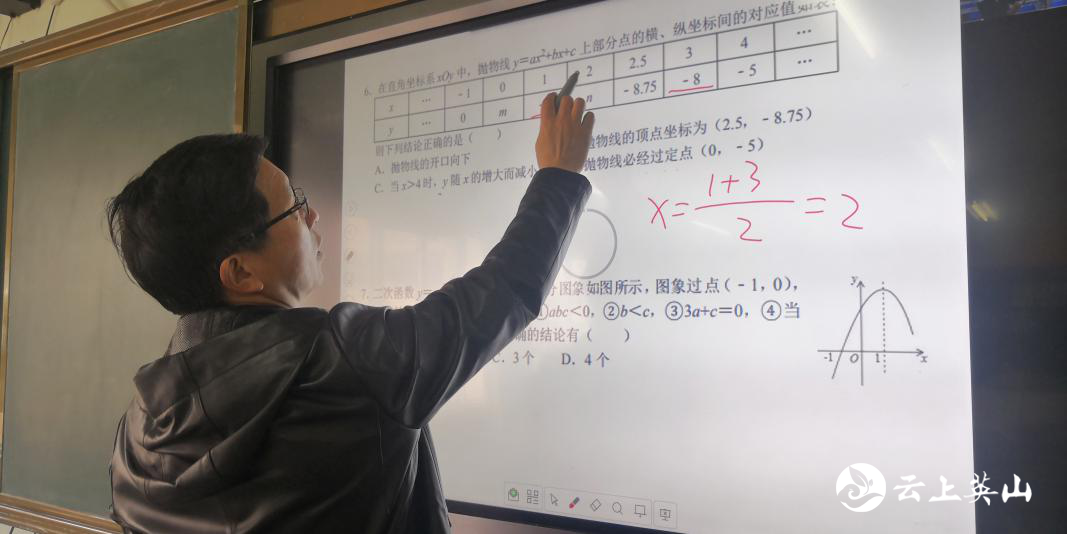 6. 在直角坐标系 xOy 中，抛物线 y=ax²+bx+c 上部分点的横、纵坐标间的对应值如表：
x … -1 0 1 2 2.5 3 4 …
y … 0 m n -8.75 -8 -5 …
则下列结论正确的是（ ）
A. 抛物线的开口向下 抛物线的顶点坐标为（2.5，-8.75）
C. 当 x>4 时，y 随 x 的增大而减小 抛物线必经过定点（0，-5）
x=(1+3)/2=2
7. 二次函数 y= 图象如图所示，图象过点(-1，0)，
①abc<0，②b<c，③3a+c=0，④当
确的结论有（ ）
C. 3个 D. 4个
y
-1 O 1 x
云上英山